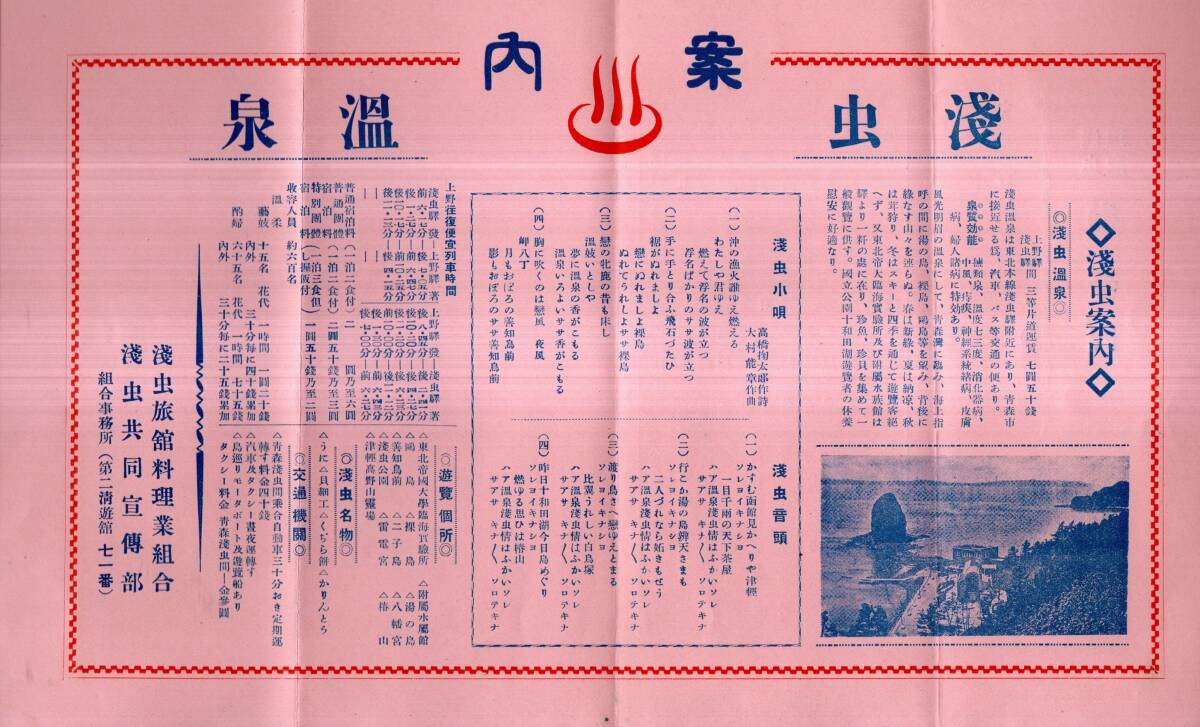 案內
淺虫
溫泉
◇淺虫案內◇
◎淺虫溫泉◎
上野驛間 三等片道運賃 七圓五十錢
淺虫驛
淺虫溫泉は東北本線淺虫驛附近にあり、青森市
に接近せる爲、汽車、バス等交通の便あり。
泉質効能 鹽類泉、溫度七三度、消化器病、
中風、痔疾、神經系統諸病、皮膚
病、婦人諸病に特効あり。
風光明眉の溫泉にして、青森灣に臨み、海上指
呼の間に湯の島、裸島、鷗島等を望み、背後に
綠なす山々を連らぬ。春は新綠、夏は納凉、秋
は茸狩り、冬はスキーと四季を通じて遊覽客絕
へず、又東北帝大臨海實驗所及び附屬水族館は
驛より一粁の處に在り、珍魚、珍貝を集めて一
般觀覽に供す。國立公園十和田湖遊覽者の休養
慰安に好適なり。
淺虫小唄
高橋掬太郎作詩
大村能章作曲
(一) 沖の漁火誰ゆえ燃える
わたしや君ゆえ
燃えて浮名の波が立つ
浮名ばかりのササ波が立つ
(二) 手に手とり合ふ飛石づたひ
裾がぬれましよ
戀にぬれましよ裸島
ぬれてうれしよササ裸島
(三) 戀の牝鹿の昔も床し
溫妓いとしや
夢に溫泉の香がこもる
溫泉いろよいササ香がこもる
(四) 胸に吹くのは戀風 夜風
岬八丁
月もおぼろの善知鳥前
影もおぼろのササ善知鳥前
淺虫音頭
(一) かすむ函館見かへりや津輕
ソレヨイキナシヨ
一目千兩の天下茶屋
ハア溫泉淺虫情はふかいソレ
サアサ キナ〱 ソロテキナ
(二) 行こか湯の島辨天さまも
ソレヨイキナシヨ
二人づれなら妬きもせう
ハア溫泉淺虫情はふかいソレ
サアサ キナ〱 ソロテキナ
(三) 渡り鳥さへ戀ゆえとまる
ソレヨイキナシヨ
比翼うれしい白鳥塚
ハア溫泉淺虫情はふかいソレ
サアサ キナ〱 ソロテキナ
(四) 昨日十和田湖今日島めぐり
ソレヨイキナシヨ
燃ゆる思ひは椿山
ハア溫泉淺虫情はふかいソレ
サアサ キナ〱 ソロテキナ
上野往復便宜列車時間
淺虫驛 發―上野驛 著
上野驛 發―淺虫驛 著
普通宿泊料 (一泊二食付) 二 圓乃至六圓
普通團體宿泊料 (一泊二食付) 二圓五十錢乃至三圓
特別團體宿泊料 (一泊三食但し握飯付) 一圓五十錢乃至二圓
收容人員 約六百名
溫柔
藝妓 十五名內外 花代 一時間 一圓二十錢 三十分每に四十錢累加
酌婦 六十五名內外 花代 一時間 七十五錢 三十分每に二十五錢累加
◎遊覽個所◎
△東北帝國大學臨海實驗所 △附屬水族館
△鷗島 △裸島 △湯の島
△善知鳥前 △二子島 △八幡宮
△淺虫公園 △雷電宮 △椿山
△津輕高野山靈場
◎淺虫名物◎
△うに△貝細工△くぢら餠△かりんとら
◎交通機關◎
△青森淺虫間乗合自動車三十分おき定期運
轉す料金四十錢
△汽車及タクシー晝夜運轉す
△島巡りモータボート及遊覽船あり
タクシー料金 青森淺虫間―金參圓
淺虫旅舘料理業組合
淺虫共同宣傳部
組合事務所(第二淸遊舘 七一番)